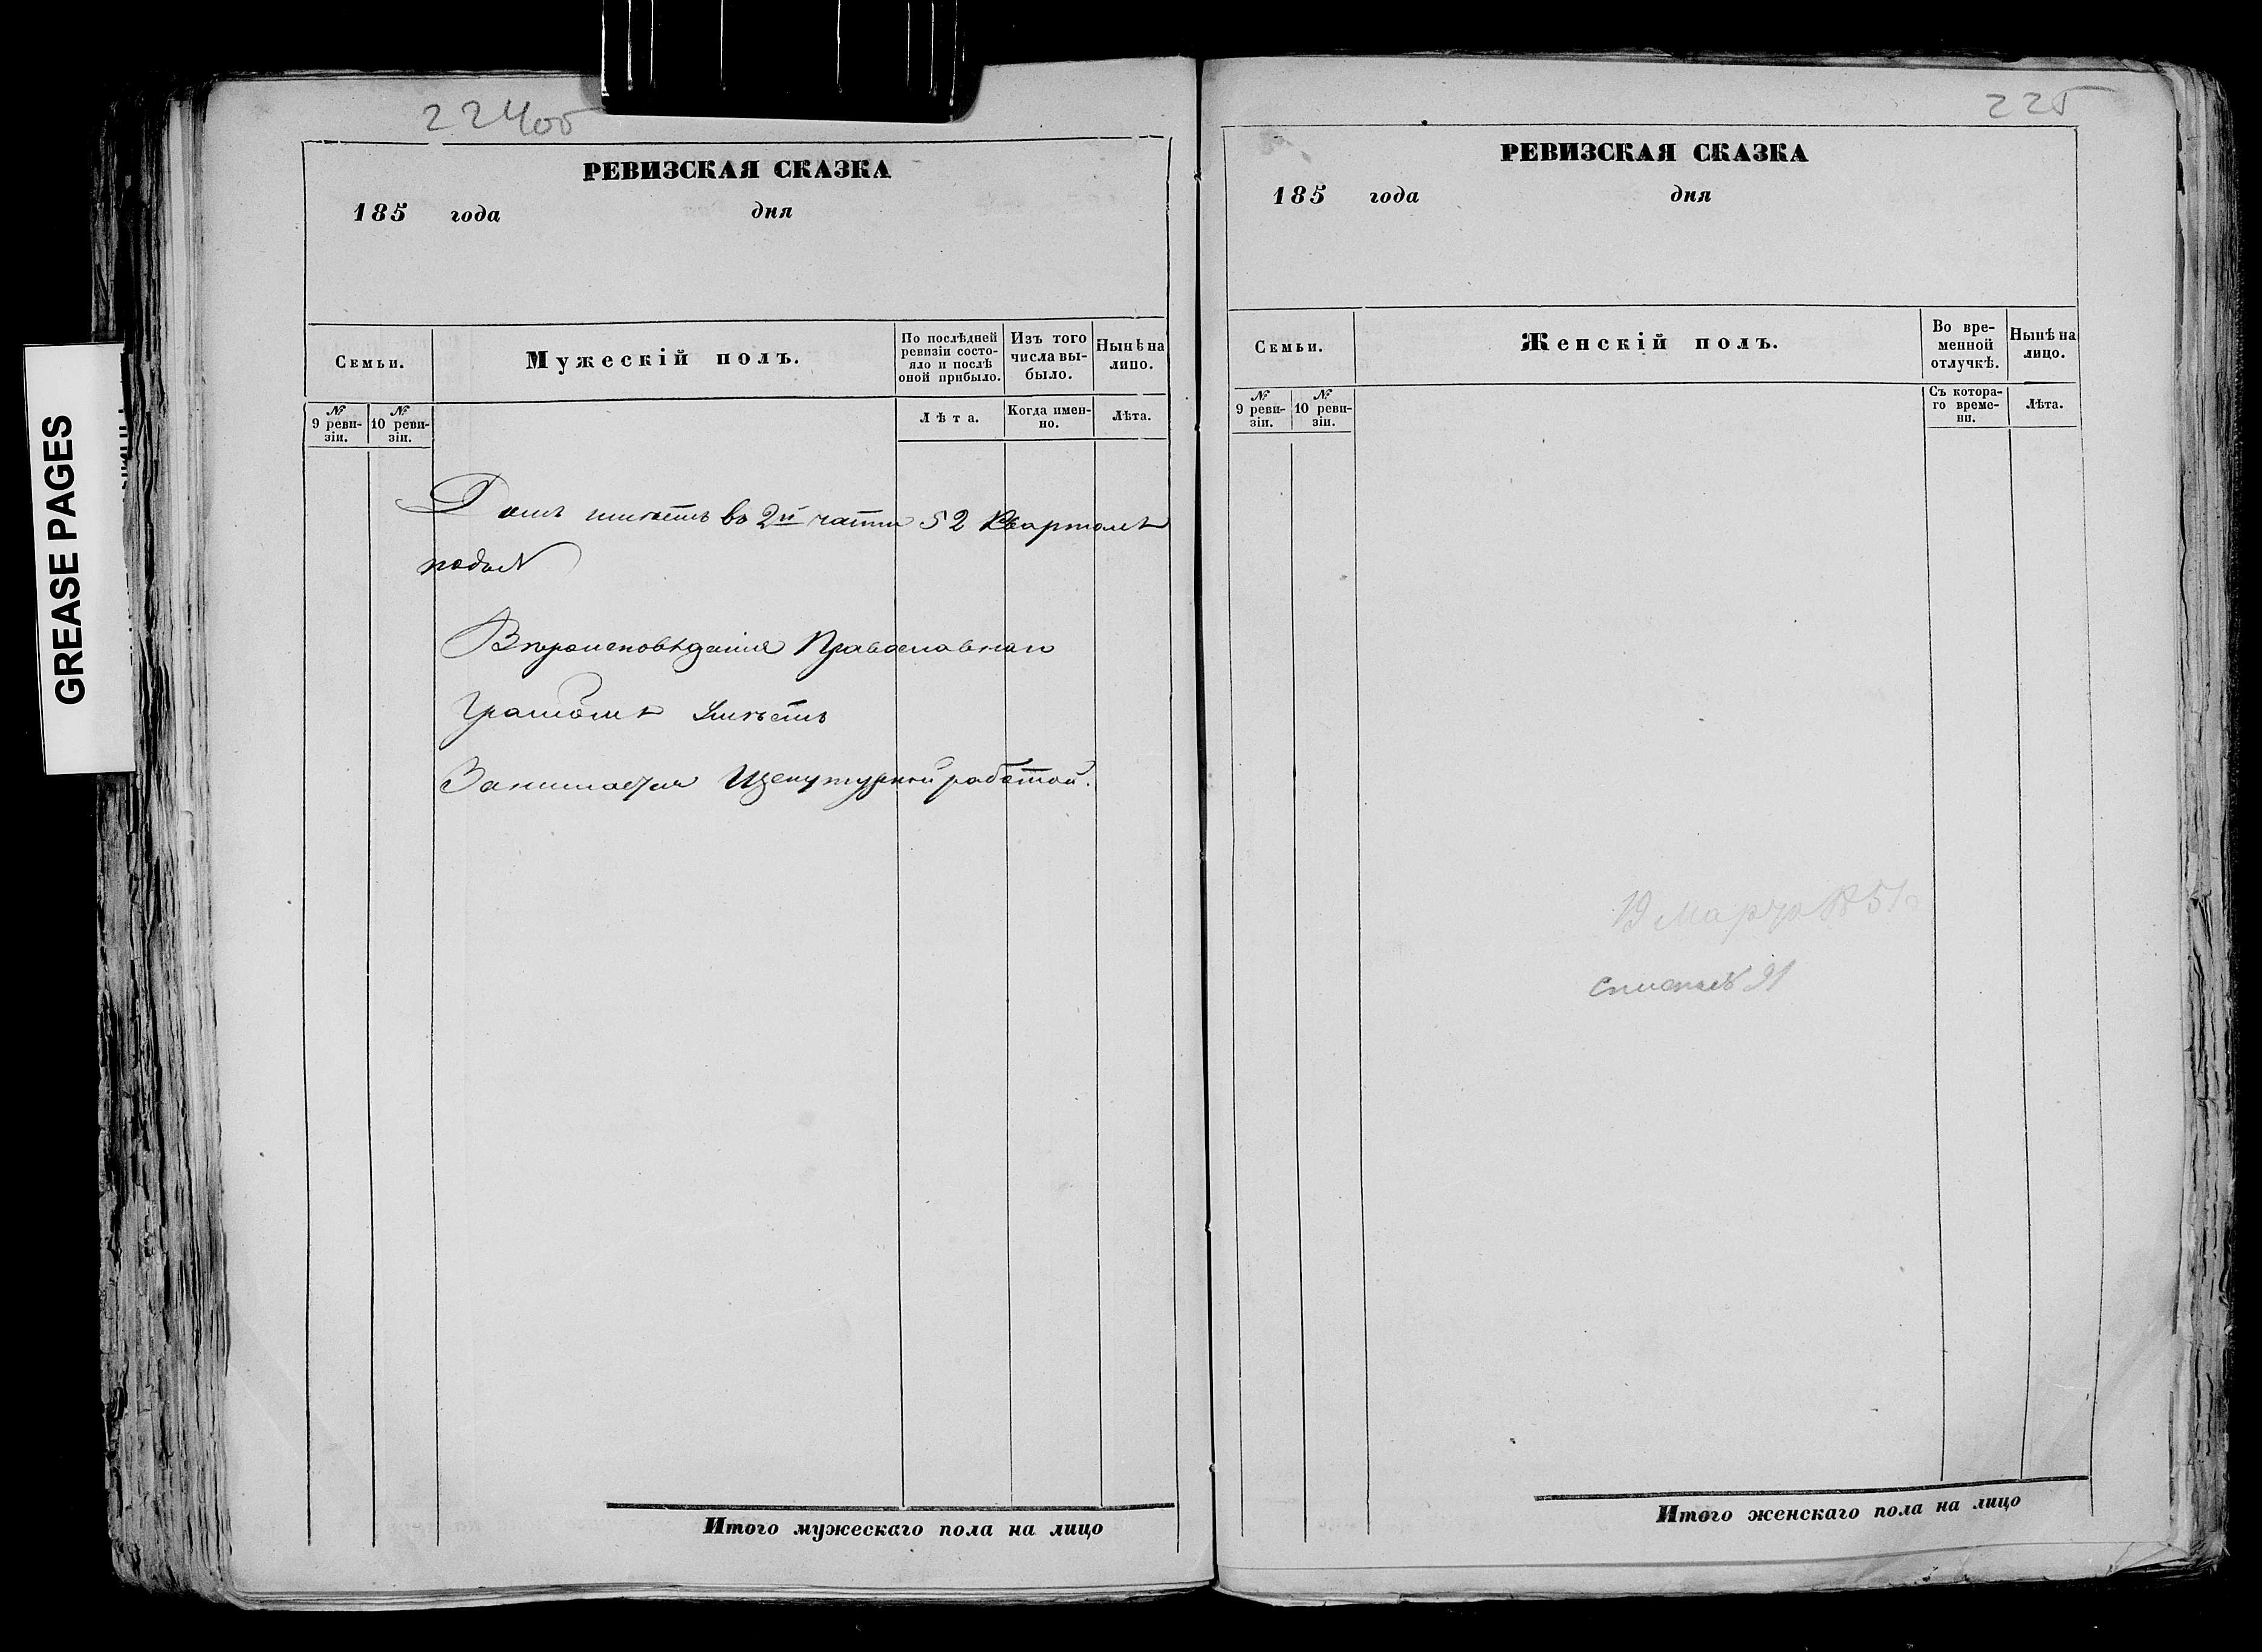 GREASE PAGES
224об
РЕВИЗСКАЯ СКАЗКА
185 года дня
Семьи.
Мужескій полъ.
По послѣдней ревизіи состояло и послѣ оной прибыло.
Изъ того числа выбыло.
Нынѣ на лицо.
№ 9 ревизіи.
№ 10 ревизіи.
Лѣта.
Когда именно.
Лѣта.
Домъ имѣетъ во 2й части 52 Кварталѣ
подъ №
Вѣроисповѣданія Православнаго
Грамотѣ Умѣетъ
Занимается Щекутурной работой.
Итого мужескаго пола на лицо
225
РЕВИЗСКАЯ СКАЗКА
185 года дня
Семьи.
Женскій полъ.
Во временной отлучкѣ.
Нынѣ на лицо.
№ 9 ревизіи.
№ 10 ревизіи.
Съ котораго времени.
Лѣта.
19 Марта
Итого женскаго пола на лицо